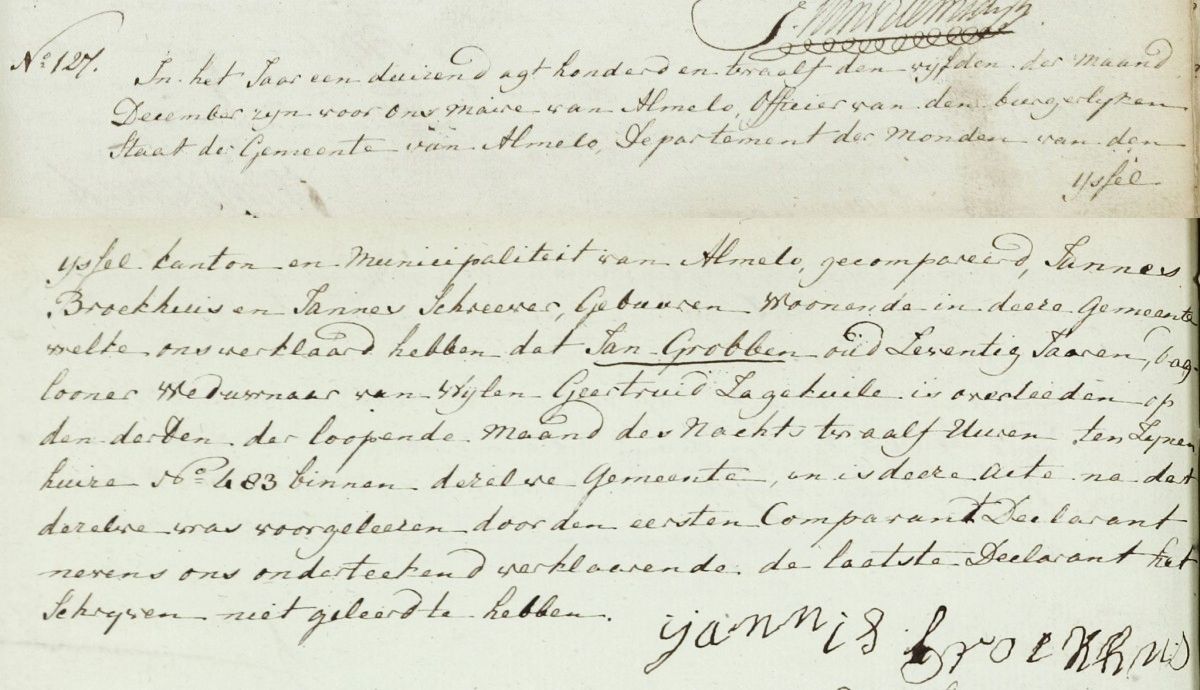 No. 127.
In het Jaar een duizend agt honderd en twaalf den vyfden der maand
December zyn voor ons maire van Almelo, Officier van den burgerlyken
Staat der Gemeente van Almelo, Departement der Monden van den
yssel
yssel kanton en Municipaliteit van Almelo, gecompareerd, Jannes
Broekhuis en Jannes Schreever, Gebuuren Woonende in deeze Gemeente
welke ons verklaard hebben dat Jan Grobben oud Zeventig Jaaren, dag-
looner Weduwnaar van Wylen Geertruid Lagekuile is overleeden op
den derden der loopende Maand des Nachts twaalf Uuren ten Zynen
huize No. 483 binnen dezelve Gemeente, en is deeze Acte na dat
dezelve was voorgeleezen door den eersten Comparant Declarant
nevens ons onderteekend verklaarende de laatste Declarant het
Schryven niet geleerd te hebben.
jannis broekhuis